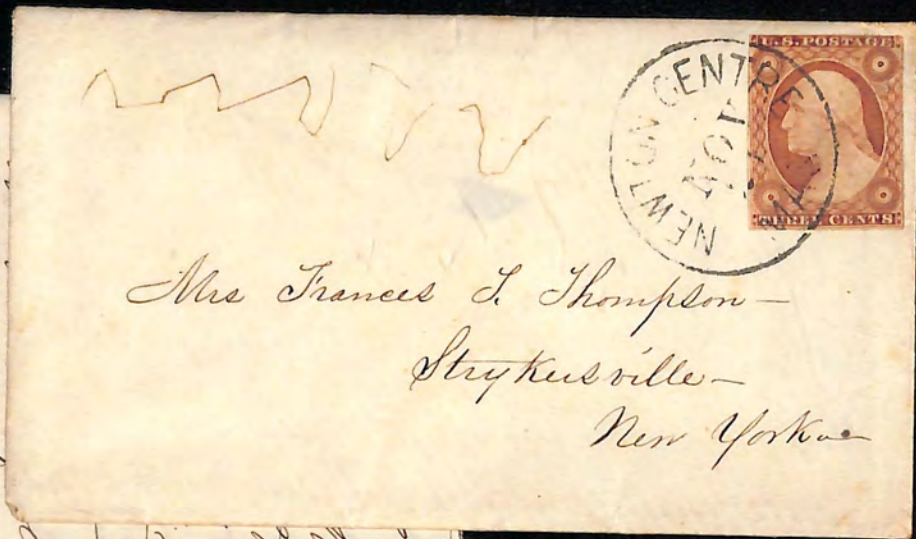 U.S. POSTAGE
THREE CENTS
NEWTON CENTRE
NOV
Mrs Frances S. Thompson –
Strykersville –
New York